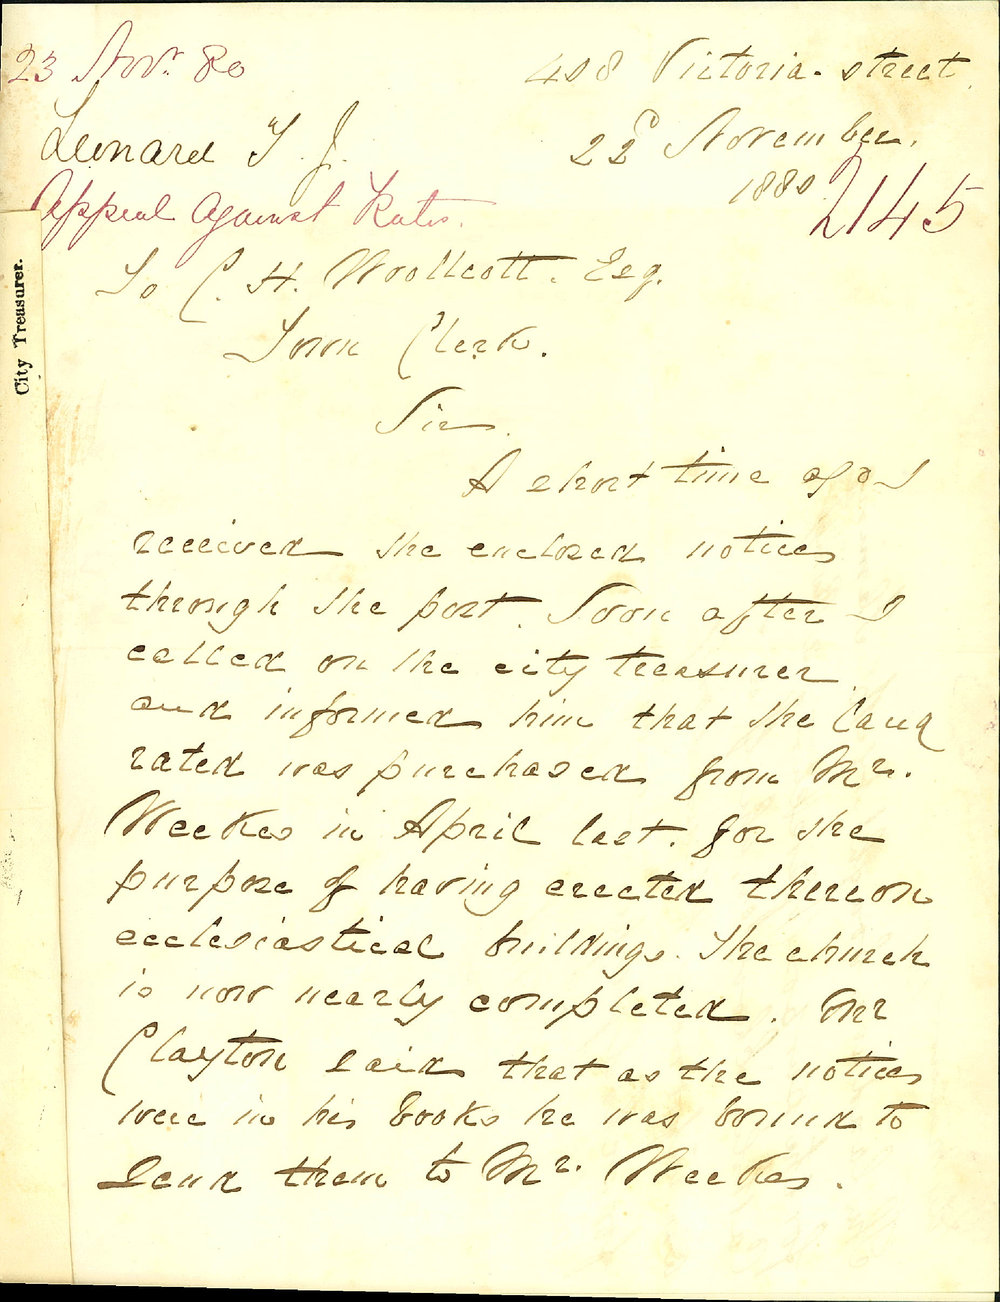 23 Novr. 80
408 Victoria street
Leonard T. J.
22d November.
1880
Appeal against Rates.
2145
City Treasurer.
To C. H. Woollcott. Esq.
Town Clerk.
Sir.
A short time ago I
received the enclosed notices
through the post. Soon after I
called on the city treasurer
and informed him that the land
rated was purchased from Mr.
Weekes in April last. for the
purpose of having erected thereon
ecclesiastical buildings. The church
is now nearly completed. Mr
Clayton said that as the notices
were in his books he was bound to
send them to Mr. Weekes.